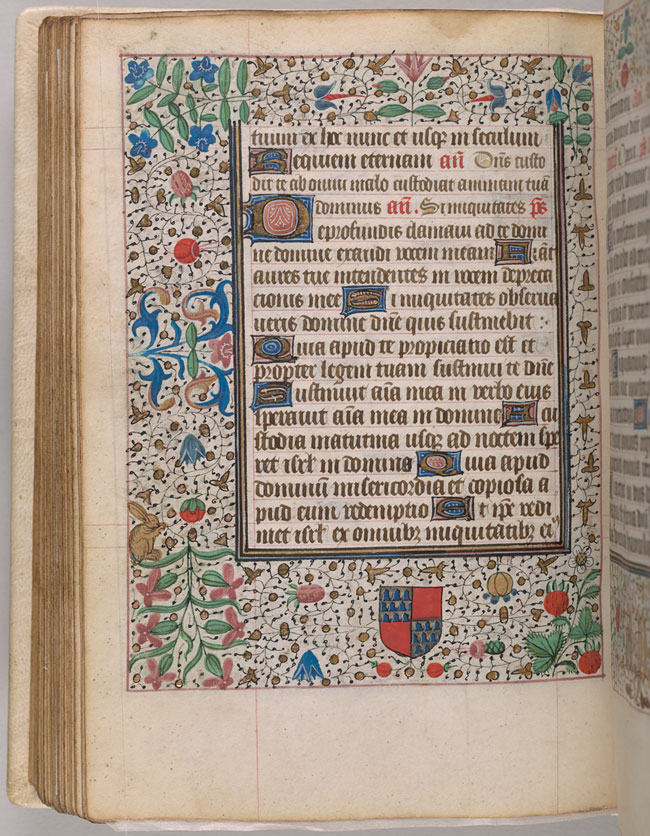 tuum ex hoc nunc et usq; in seculum
Requiem eternam añ Dñs custo
dit te ab omni malo custodiat animam tuā
dominus añ. Si iniquitates ps̄
De profundis clamavi ad te domi
ne domine exaudi vocem meam Fiāt
aures tue intendentes in vocem depreca
cionis mee Si iniquitates observa
veris domine dñe quis sustinebit :
Quia apud te propiciatio est et
propter legem tuam sustinui te dñe
Sustinuit aīa mea in verbo eius
speravit aīa mea in domino A cu
stodia matutina usq; ad noctem spe
ret isrl in domino Quia apud
dominum misericordia et copiosa a
pud eum redemptio Et ipē redi
met isrl ex omnib; iniquitatib; ei